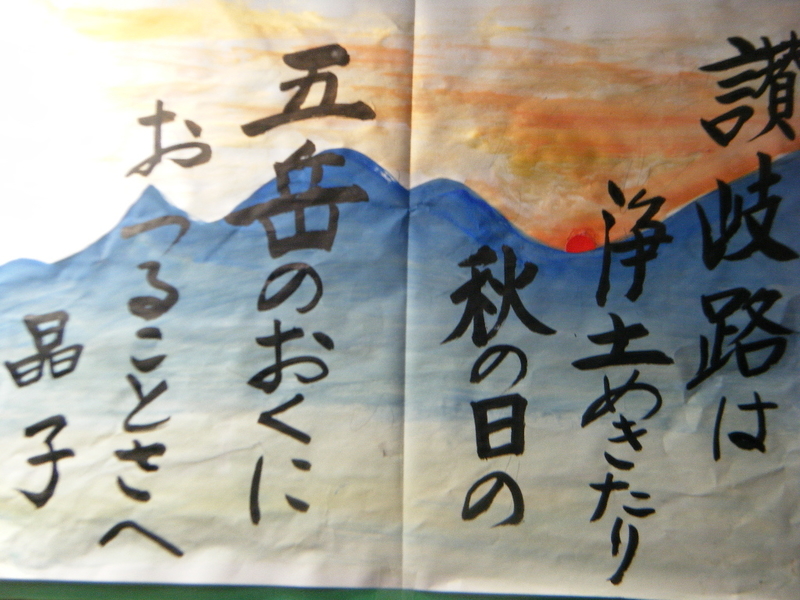 讃岐路は
浄土めきたり
秋の日の
五岳のおくに
おつることさへ
晶子